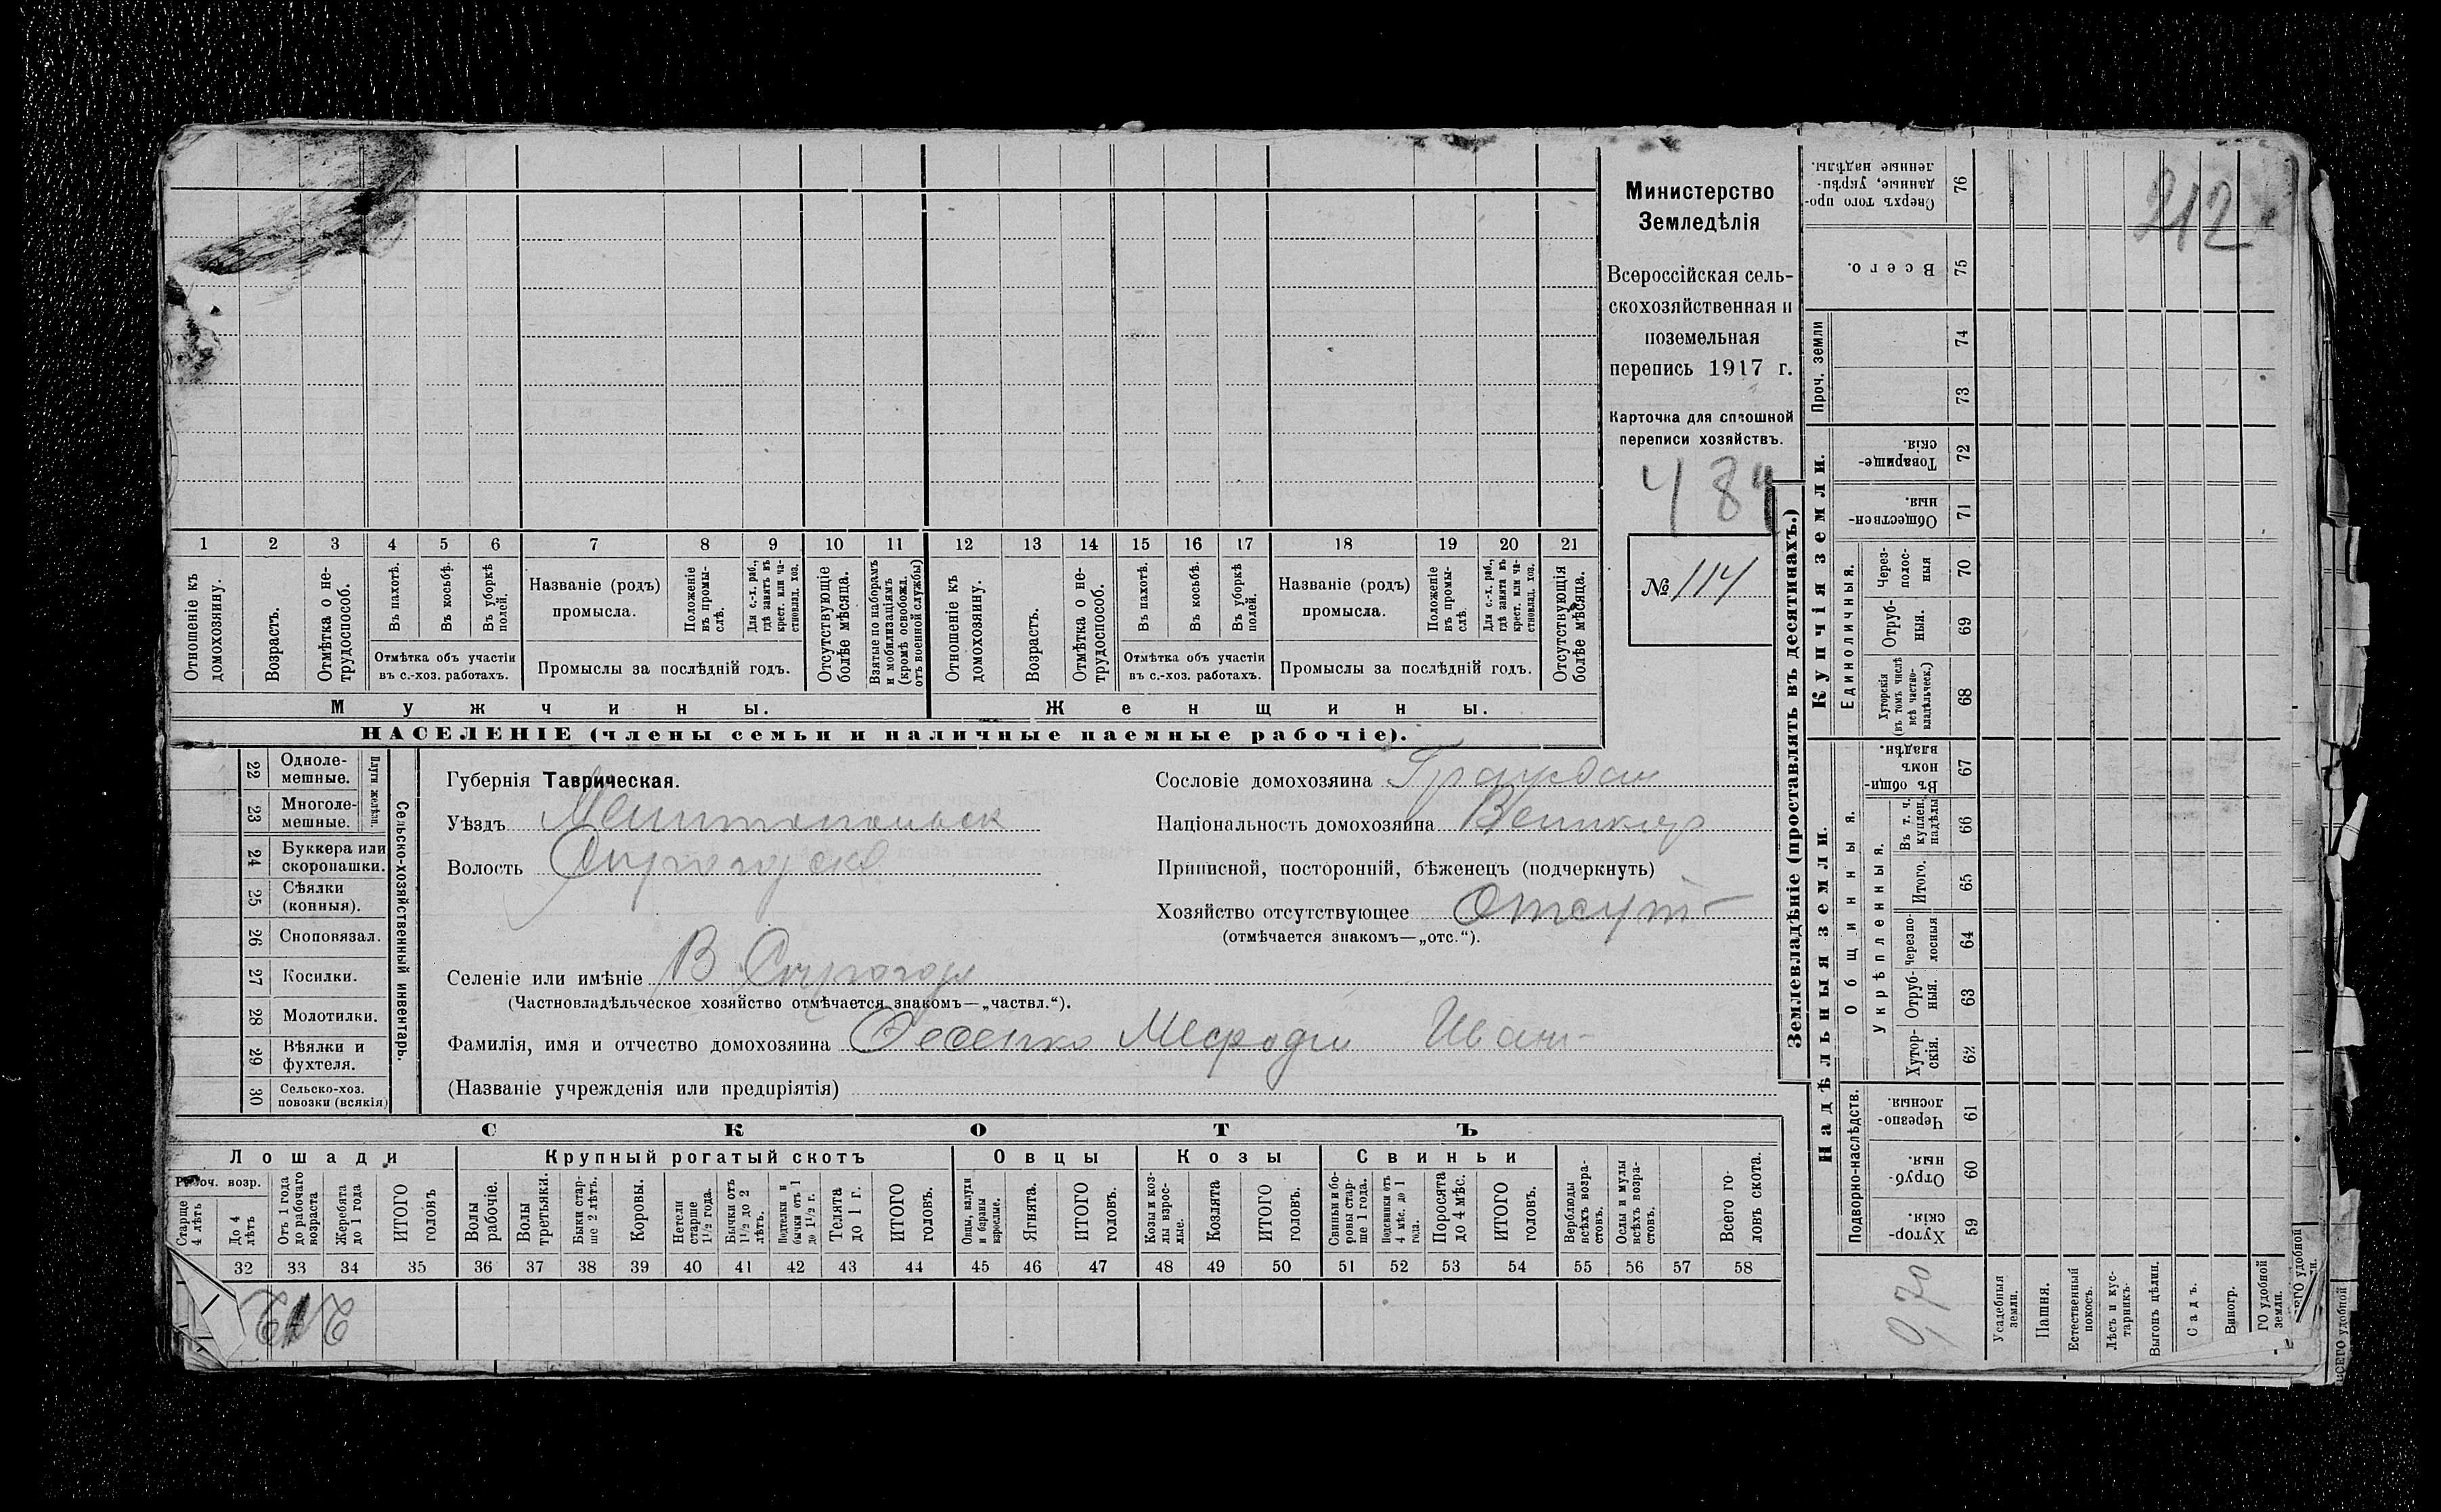 Министерство
Земледѣлія
Всероссійская сель-
скохозяйственная и
поземельная
перепись 1917 г.
Карточка для сплошной
переписи хозяйствъ.
484
№ 114
212
1 2 3 4 5 6 7 8 9 10 11 12 13 14 15 16 17 18 19 20 21
Отношеніе къ домохозяину.
Возрастъ.
Отмѣтка о не-трудоспособ.
Въ пахотѣ.
Въ косьбѣ.
Въ уборкѣ полей.
Отмѣтка объ участіи
въ с.-хоз. работахъ.
Названіе (родъ)
промысла.
Положеніе въ промы-слѣ.
Для с.-х. раб., гдѣ занятъ въ крест. или ча-стновлад. хоз.
Промыслы за послѣдній годъ.
Отсутствующіе болѣе мѣсяца.
Взятые по наборамъ и мобилизаціямъ (кромѣ освобожд. отъ военной службы)
Отношеніе къ домохозяину.
Возрастъ.
Отмѣтка о не-трудоспособ.
Въ пахотѣ.
Въ косьбѣ.
Въ уборкѣ полей.
Отмѣтка объ участіи
въ с.-хоз. работахъ.
Названіе (родъ)
промысла.
Положеніе въ промы-слѣ.
Для с.-х. раб., гдѣ занята въ крест. или ча-стновлад. хоз.
Промыслы за послѣдній годъ.
Отсутствующія болѣе мѣсяца.
Мужчины.
Женщины.
НАСЕЛЕНІЕ (члены семьи и наличные наемные рабочіе).
22 Одноле-мешные.
23 Многоле-мешные.
Плуги желѣзн.
24 Буккера или скоропашки.
25 Сѣялки (конныя).
26 Сноповязал.
27 Косилки.
28 Молотилки.
29 Вѣялки и фухтеля.
30 Сельско-хоз. повозки (всякія)
Сельско-хозяйственный инвентарь.
Губернія Таврическая.
Уѣздъ Мелитопольск
Волость
Селеніе или имѣніе В
(Частновладѣльческое хозяйство отмѣчается знакомъ—„частвл.“).
Фамилія, имя и отчество домохозяина Мефодій Иван-
(Названіе учрежденія или предпріятія)
Сословіе домохозяина Граждан
Національность домохозяина Великор
Приписной, посторонній, бѣженецъ (подчеркнуть)
Хозяйство отсутствующее Отсут-
(отмѣчается знакомъ—„отс.“).
СКОТЪ
Лошади
Крупный рогатый скотъ
Овцы
Козы
Свиньи
Рабоч. возр.
Старше 4 лѣтъ
До 4 лѣтъ
Отъ 1 года до рабочаго возраста
Жеребята до 1 года
ИТОГО головъ
Волы рабочіе.
Волы третьяки.
Быки стар-ше 2 лѣтъ.
Коровы.
Нетели старше 1½ года.
Бычки отъ 1½ до 2 лѣтъ.
Подтелки и бычки отъ 1 до 1½ г.
Телята до 1 г.
ИТОГО головъ.
Овцы, валухи и бараны взрослые.
Ягнята.
ИТОГО головъ.
Козы и коз-лы взрос-лые.
Козлята
ИТОГО головъ.
Свиньи и бо-ровы стар-ше 1 года.
Подсвинки отъ 4 мѣс. до 1 года.
Поросята до 4 мѣс.
ИТОГО головъ.
Верблюды всѣхъ возра-стовъ.
Ослы и мулы всѣхъ возра-стовъ.
Всего го-ловъ скота.
32 33 34 35 36 37 38 39 40 41 42 43 44 45 46 47 48 49 50 51 52 53 54 55 56 57 58
212
Землевладѣніе (проставлять въ десятинахъ.)
Купчія земли.
Надѣльныя земли.
Сверхъ того про-данные, укрѣп-ленные надѣлы. 76
Всего. 75
Проч. земли 74 73
Товарище-скія. 72
Обществен-ныя. 71
Единоличныя.
Черезполос-ныя 70
Отруб-ныя. 69
Хуторскія (въ томъ числѣ всѣ частно-владѣльческ.) 68
Общинныя.
Въ общин-номъ владѣн. 67
Укрѣпленныя.
Въ т. ч. куплен. надѣлы 66
Итого. 65
Черезпо-лосныя 64
Отруб-ныя. 63
Хутор-скія. 62
Подворно-наслѣдств.
Черезпо-лосныя 61
Отруб-ныя. 60
Хутор-скія. 59
Усадебныя земли.
Пашня.
Естественный покосъ.
Лѣсъ и кус-тарникъ.
Выгонъ цѣлин.
Садъ.
Виногр.
ГО удобной земли.
ВСЕГО удобной